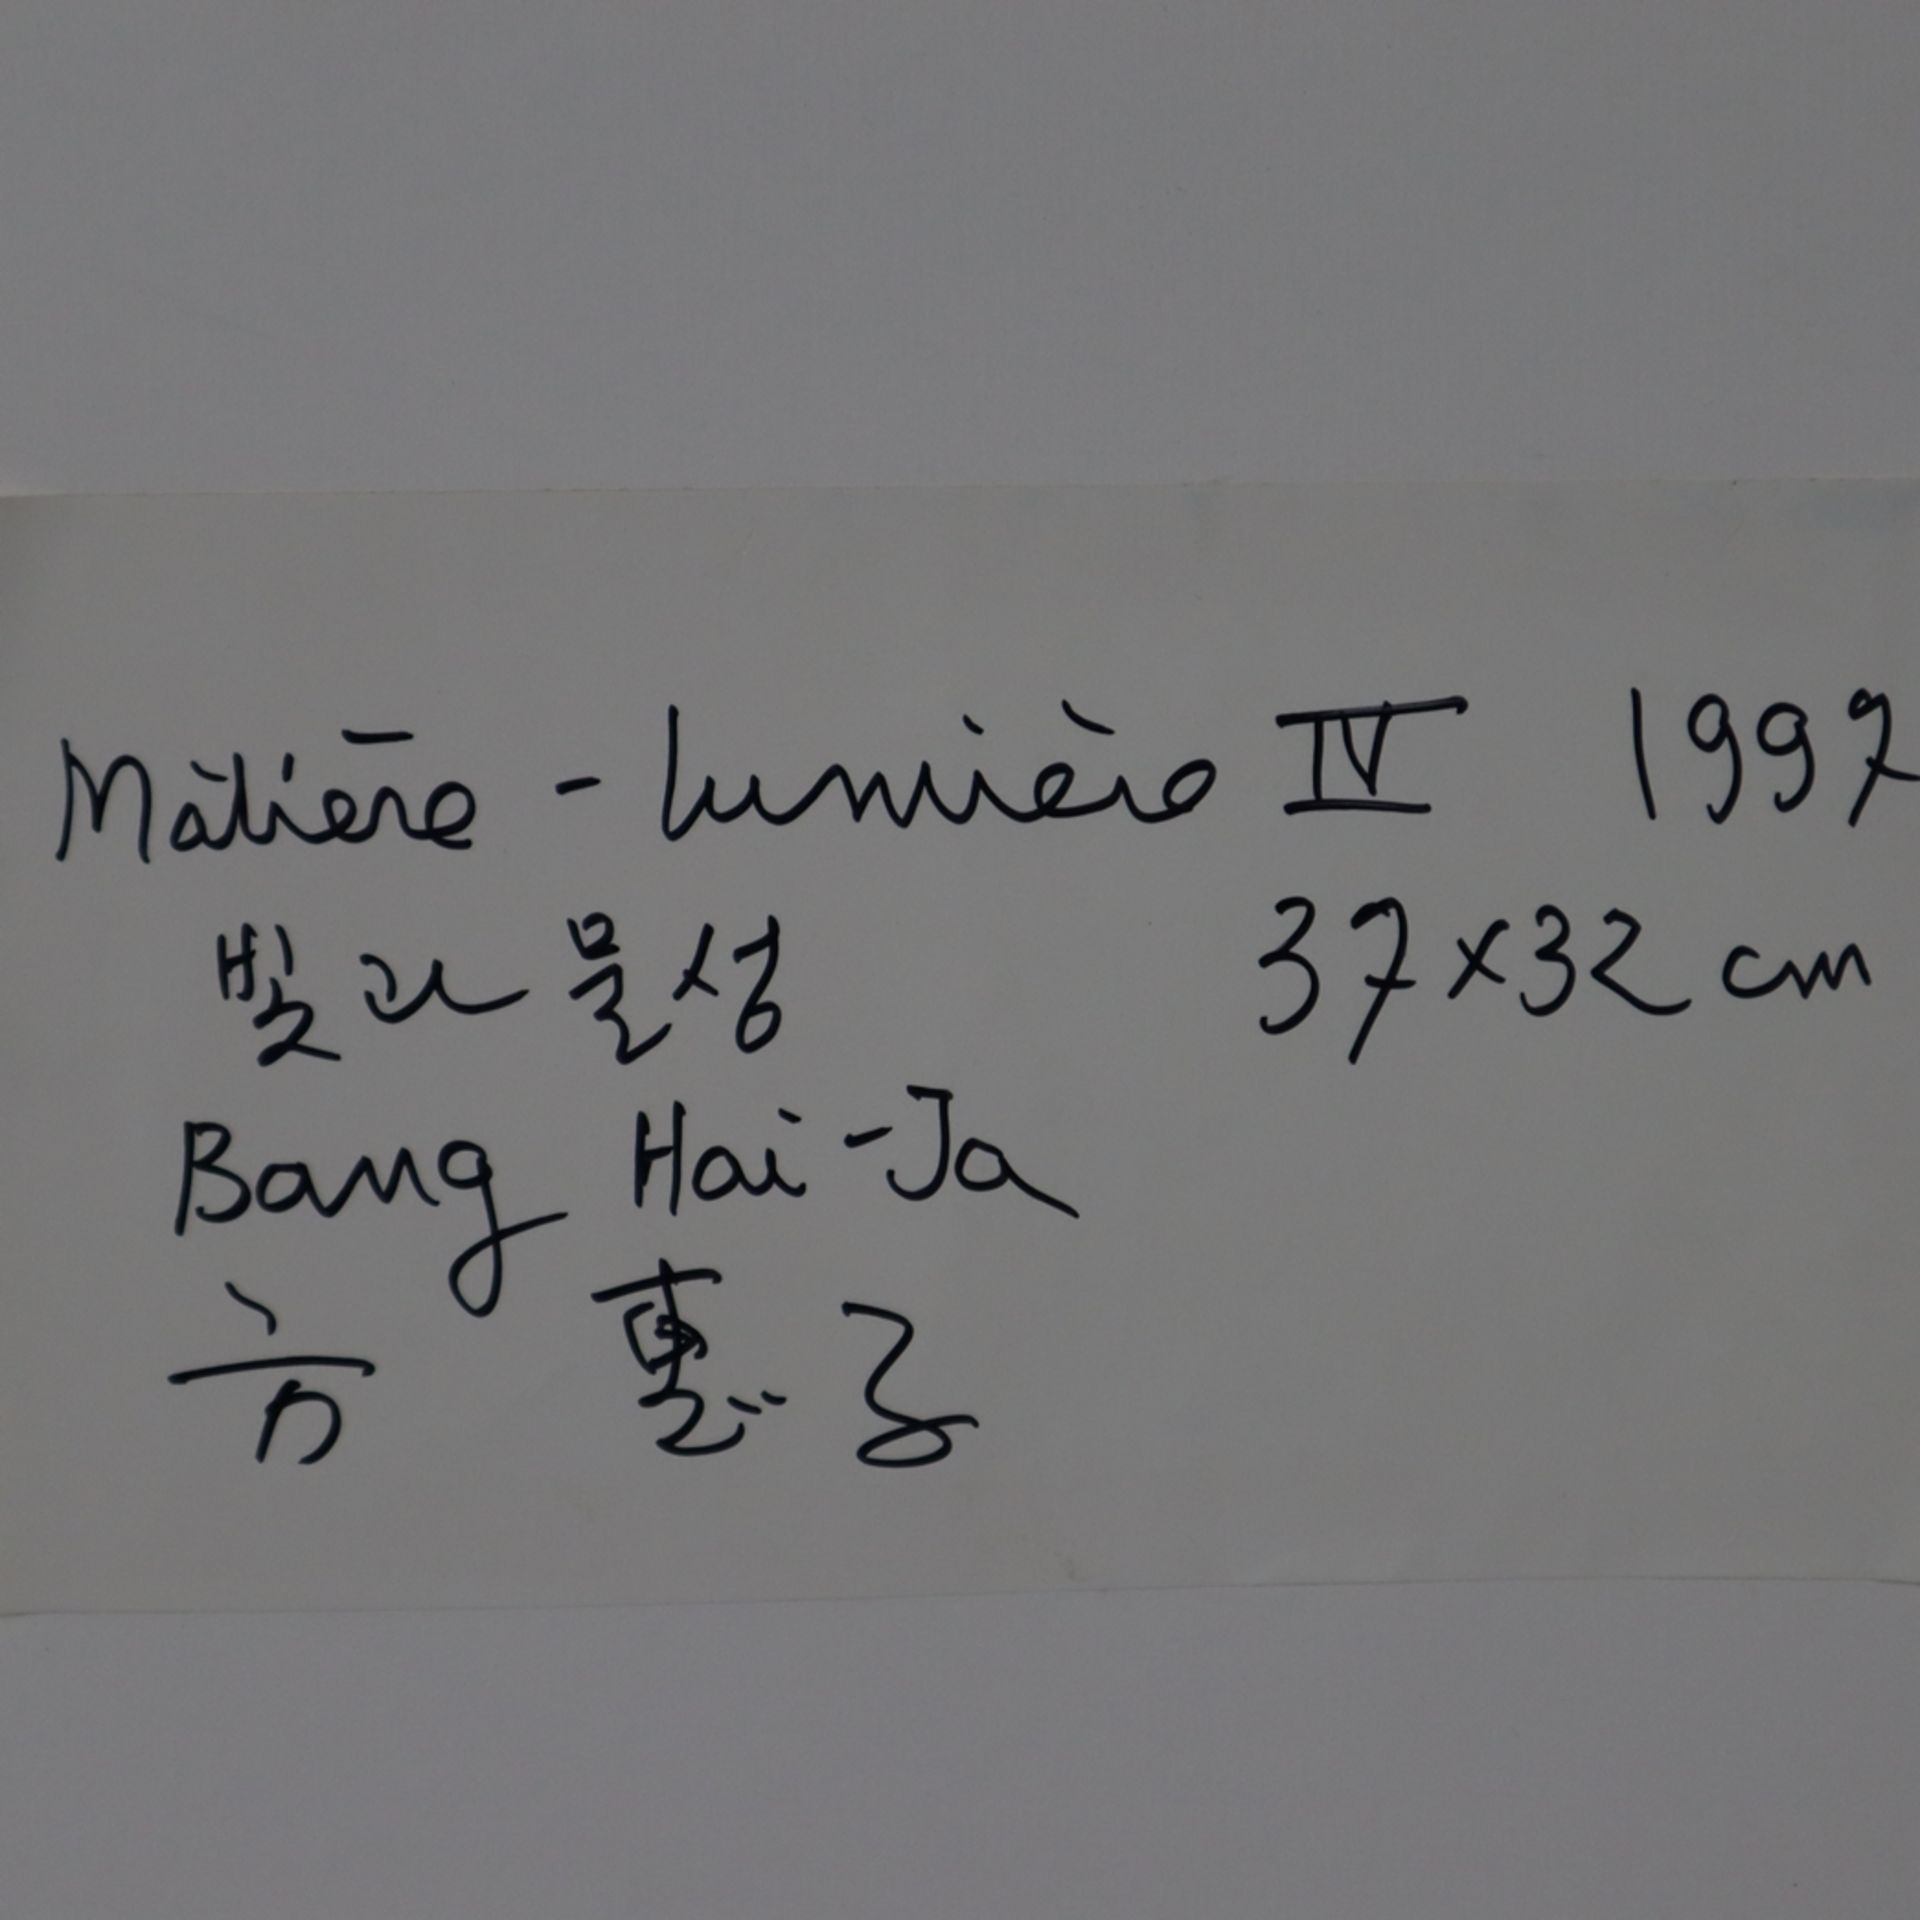 Matière - lumière IV 1997
빛과 물성 37x32 cm
Bang Hai-Ja
方 惠子